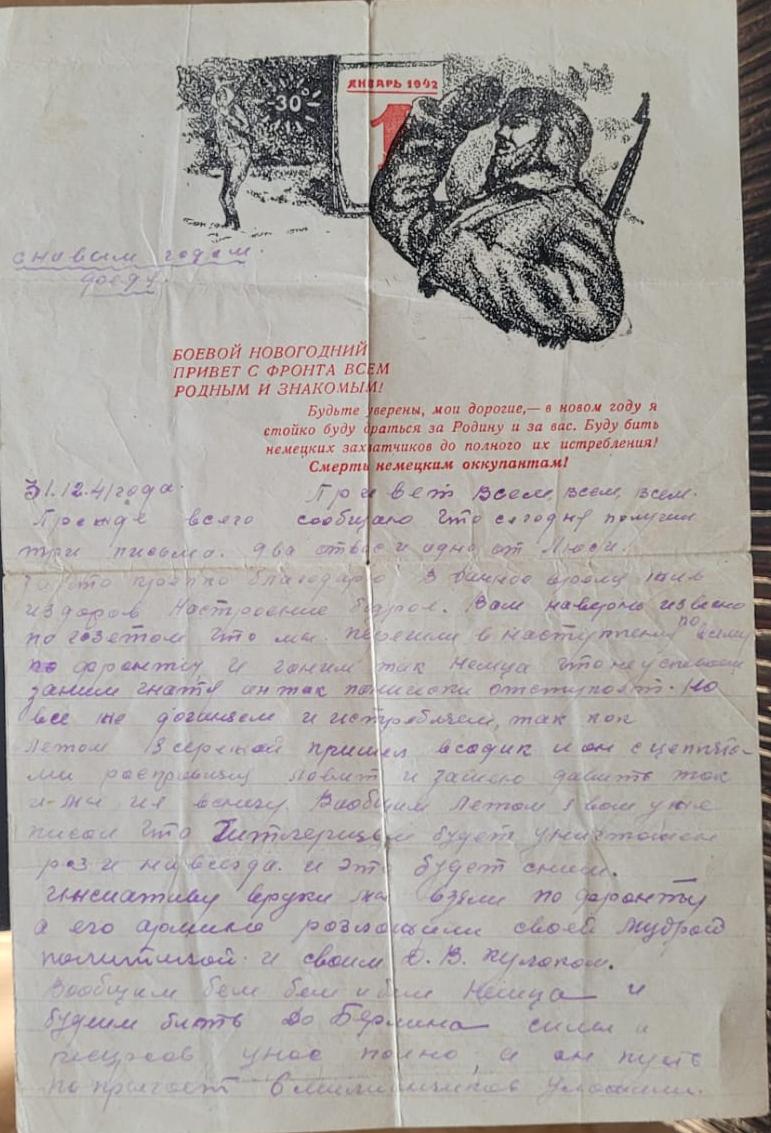 -30°
ЯНВАРЬ 1942
1
с навым годам
доеду.
БОЕВОЙ НОВОГОДНИЙ
ПРИВЕТ С ФРОНТА ВСЕМ
РОДНЫМ И ЗНАКОМЫМ!
Будьте уверены, мои дорогие,— в новом году я
стойко буду драться за Родину и за вас. Буду бить
немецких захватчиков до полного их истребления!
Смерть немецким оккупантам!
31.12.41 года. Привет всем, всем, всем.
Прежде всего сообщаю что сегодня получил
три письма. два от вас и одно от Люси.
За что крепко благодарю В данное время жив
и здоров Настроение бодрое. Вам наверно извесно
по газетом что мы перешли в наступления по всему
фронту и гоним так немца что неуспеваем
заним гнатя он так отступоят. Но
все же догоняем и истребляем, так как
летом
ми ловит и давить так
и мы их Вообщим летом я вам уже
писал что Гитлерищем будет уничтожен
раз и навсегда. и это будет сним.
инсиативу вруки мы взяли по фронту
а его армию своей мудрой
политикой и своим кулаком.
Вообщим бем бем и бем Немца и
будим бить до Берлина силы и
ресурсов унас полно, а он пусть
6 миллиончиков уложили.